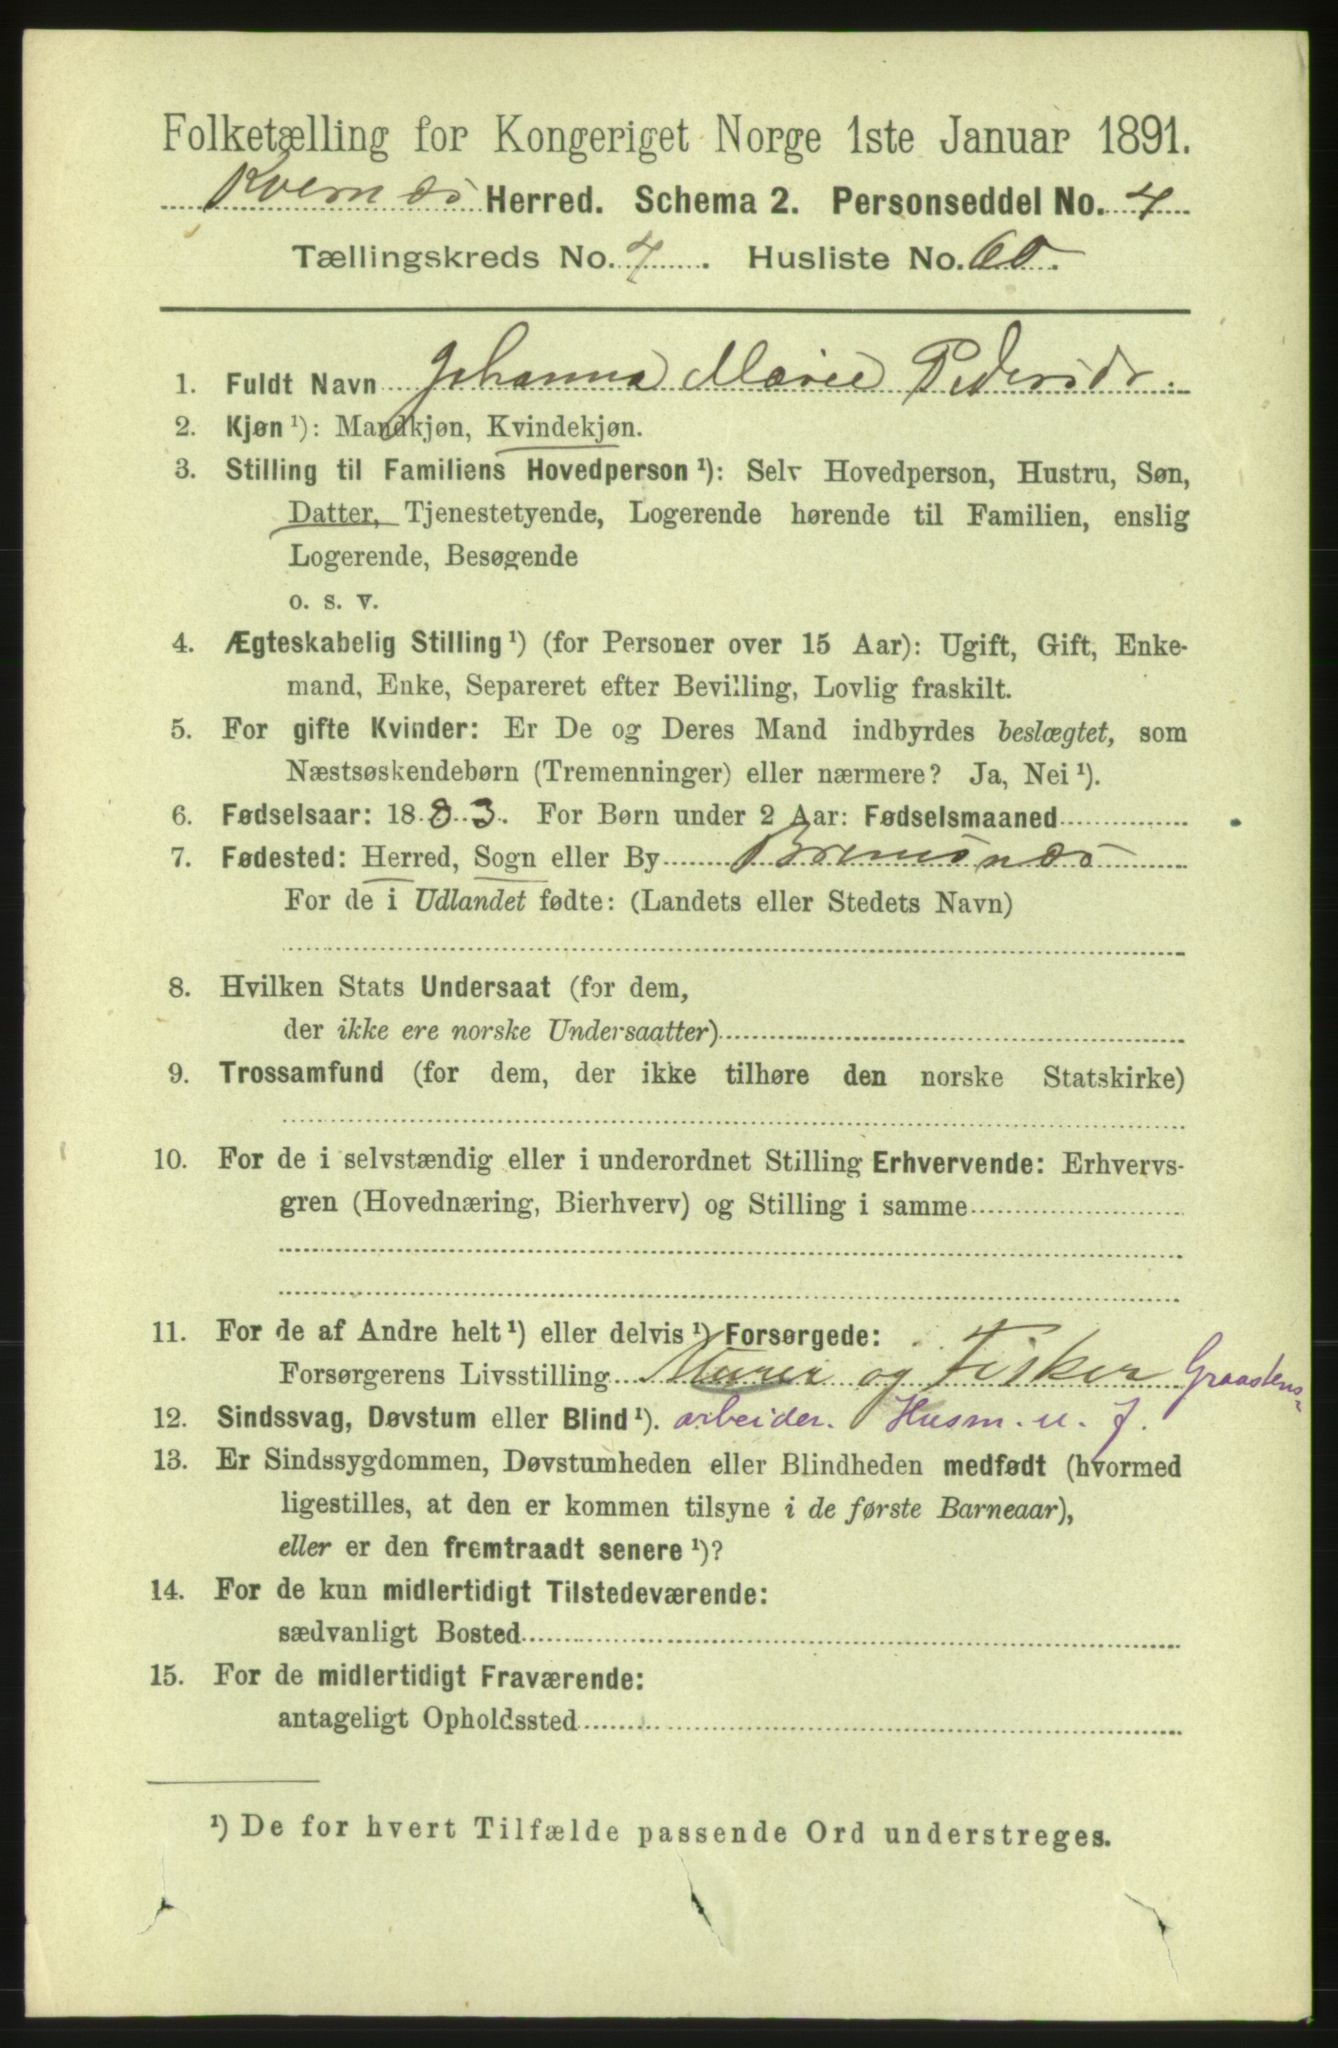 Folketælling for Kongeriget Norge 1ste Januar 1891.
Kvernes Herred. Schema 2. Personseddel No. 4
Tællingskreds No. 7. Husliste No. 60.
1. Fuldt Navn Johanna Marie Pedersdr.
2. Kjøn ¹): Mandkjøn, Kvindekjøn.
3. Stilling til Familiens Hovedperson ¹): Selv Hovedperson, Hustru, Søn,
Datter, Tjenestetyende, Logerende hørende til Familien, enslig
Logerende, Besøgende
o. s. v.
4. Ægteskabelig Stilling ¹) (for Personer over 15 Aar): Ugift, Gift, Enke-
mand, Enke, Separeret efter Bevilling, Lovlig fraskilt.
5. For gifte Kvinder: Er De og Deres Mand indbyrdes beslægtet, som
Næstsøskendebørn (Tremenninger) eller nærmere? Ja, Nei ¹).
6. Fødselsaar: 1883. For Børn under 2 Aar: Fødselsmaaned
7. Fødested: Herred, Sogn eller By Bremsnes
For de i Udlandet fødte: (Landets eller Stedets Navn)
8. Hvilken Stats Undersaat (for dem,
der ikke ere norske Undersaatter)
9. Trossamfund (for dem, der ikke tilhøre den norske Statskirke)
10. For de i selvstændig eller i underordnet Stilling Erhvervende: Erhvervs-
gren (Hovednæring, Bierhverv) og Stilling i samme
11. For de af Andre helt ¹) eller delvis ¹) Forsørgede:
Forsørgerens Livsstilling Murer og Fisker Graastens-
12. Sindssvag, Døvstum eller Blind ¹). arbeider. Husm. u. J.
13. Er Sindssygdommen, Døvstumheden eller Blindheden medfødt (hvormed
ligestilles, at den er kommen tilsyne i de første Barneaar),
eller er den fremtraadt senere ¹)?
14. For de kun midlertidigt Tilstedeværende:
sædvanligt Bosted
15. For de midlertidigt Fraværende:
antageligt Opholdssted
¹) De for hvert Tilfælde passende Ord understreges.